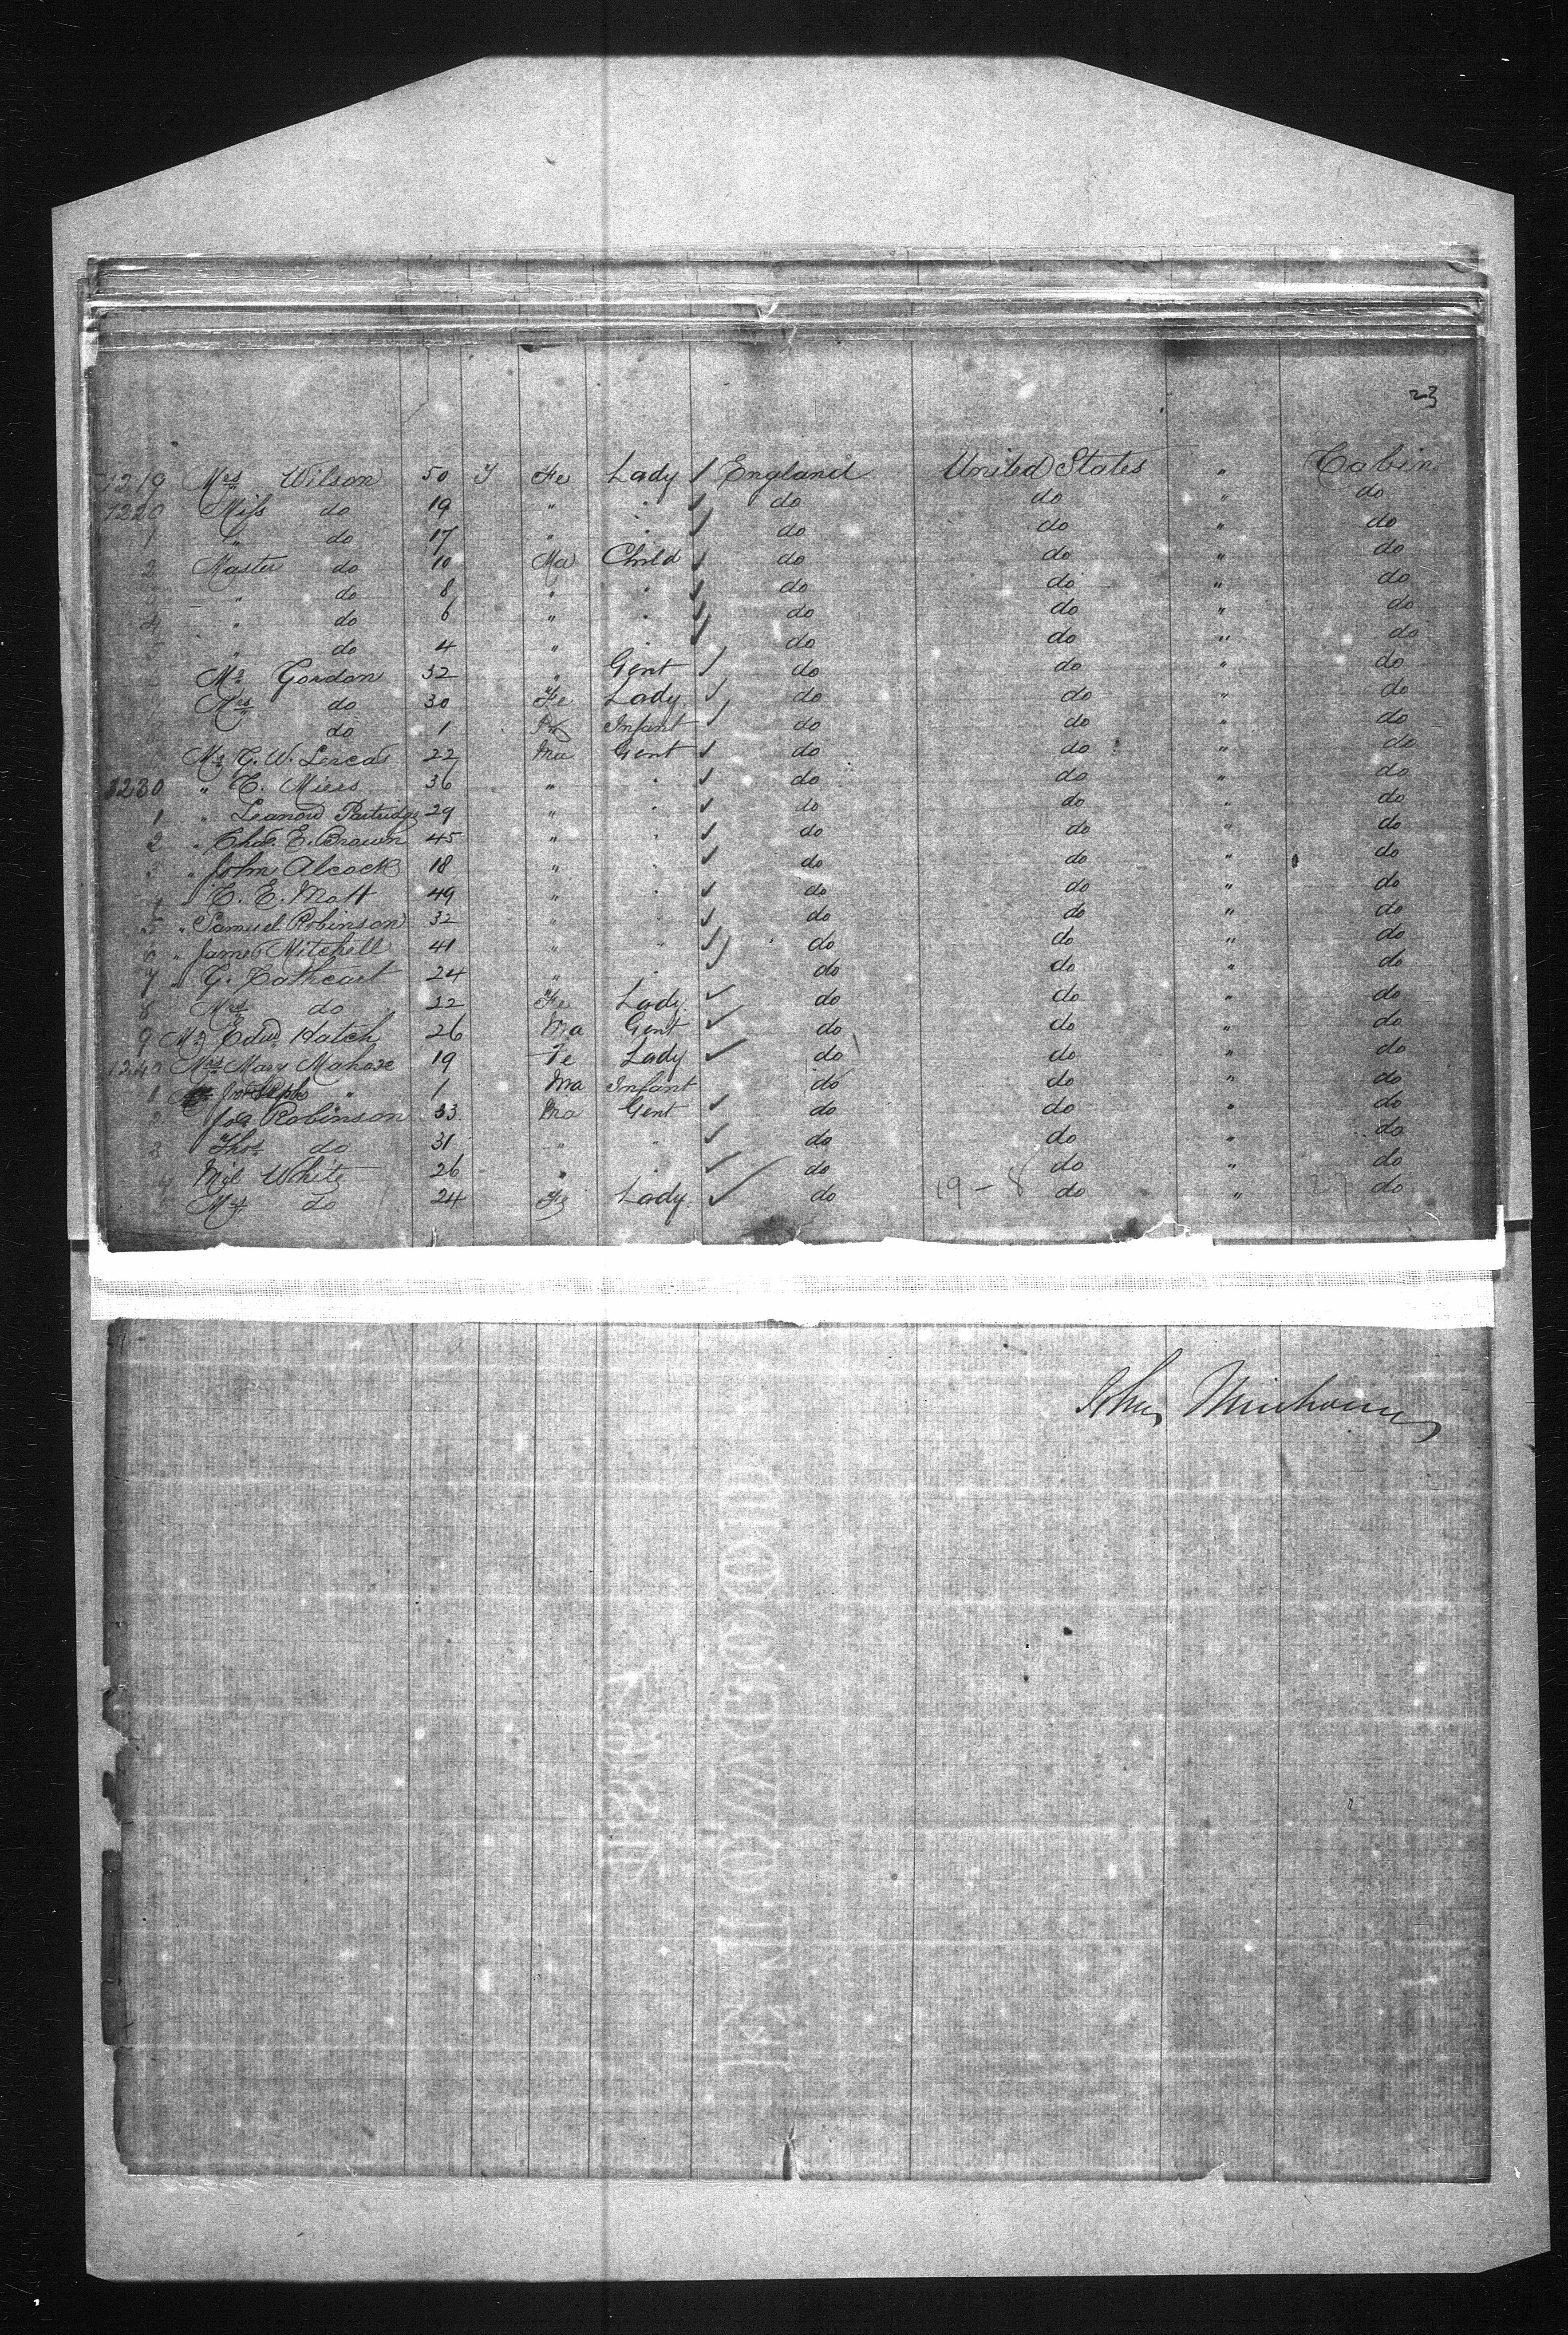 23
1219 Mrs Wilson 50 y Fe Lady ✓ England United States " Cabin
1220 Miss do 19 " " ✓ do do " do
1 " do 17 " " ✓ do do " do
2 Master do 10 Ma Child ✓ do do " do
" do 8 " " ✓ do do " do
4 " do 6 " " ✓ do do " do
5 " do 4 " " ✓ do do " do
Mr Gordon 32 " Gent ✓ do do " do
Mrs do 30 Fe Lady ✓ do do " do
do 1 Infant ✓ do do " do
Mr G. W. 22 Ma Gent ✓ do do " do
1230 " C. Miers 36 " " ✓ do do " do
1 " Leanord Partridge 29 " " ✓ do do " do
2 " Chas. E. Brown 45 " " ✓ do do " do
3 " John Alcock 18 " " ✓ do do " do
4 " C. E. Mott 49 " " ✓ do do " do
5 " Samuel Robinson 32 " " ✓ do do " do
6 " James Mitchell 41 " " ✓ do do " do
7 " G. Cathcart 24 " " ✓ do do " do
8 Mrs do 22 Fe Lady ✓ do do " do
9 Mr Edwd Hatch 26 Ma Gent ✓ do do " do
1240 Mrs Mary Mahose 19 Fe Lady ✓ do do " do
1 Joseph " 1 Ma Infant do do " do
2 Jos. Robinson 33 Ma Gent ✓ do do " do
3 Thos do 31 " " ✓ do do " do
4 White 26 " " ✓ do do " do
Mrs do 24 Fe Lady ✓ do 19 - 8 do " 27 do